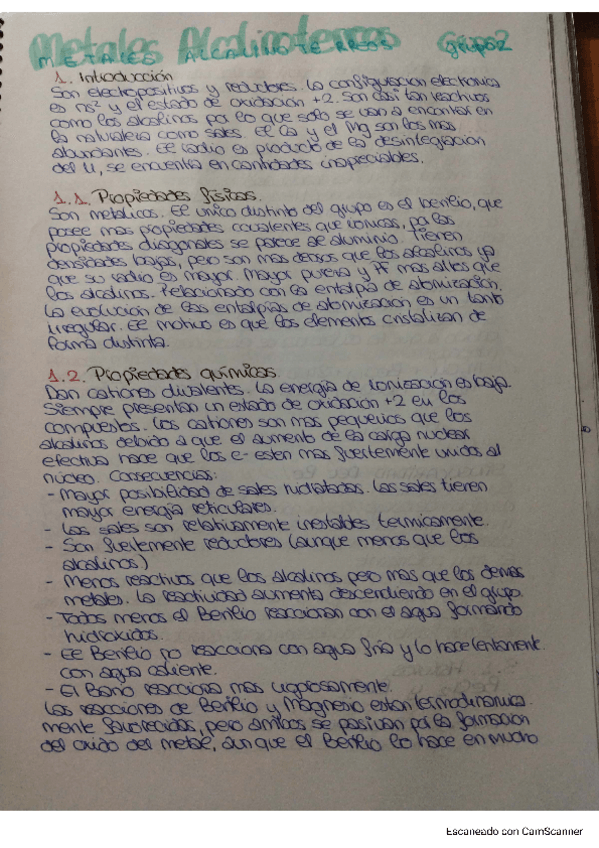 Metales Alcalinoterreos Grupo 2
METALES ALCALINOTERREOS
1. Introducción
Son electropositivos y reductores. La configuracion electronica
es ns² y el estado de oxidación +2. Son casi tan reactivos
como los alcalinos por lo que solo se van a encontrar en
la naturaleza como sales. El Ca y el Mg son los mas
abundantes. El radio es producto de la desintegración
del U, se encuentra en cantidades inapreciables.
1.1. Propiedades físicas.
Son metalicos. El unico distinto del grupo es el berilio, que
posee mas propiedades covalentes que ionicas, por las
propiedades diagonales se parece al aluminio. Tienen
densidades bajas, pero son mas densos que los alcalinos ya
que su radio es mayor. Mayor pureza y PF mas altos que
los alcalinos. Relacionado con la entalpia de atomización.
La evolucion de las entalpias de atomización es un tanto
irregular. El motivo es que los elementos cristalizan de
forma distinta.
1.2. Propiedades químicas.
Dan cationes divalentes. La energía de ionización es baja.
Siempre presentan un estado de oxidación +2 en los
compuestos. Los cationes son mas pequeños que los
alcalinos debido a que el aumento de la carga nuclear
efectiva hace que los e- esten mas fuertemente unidos al
núcleo. Consecuencias:
- Mayor posibilidad de sales hidratadas. Las sales tienen
mayor energía reticular.
- Las sales son relativamente inestables termicamente.
- Son fuertemente reductores (aunque menos que los
alcalinos)
- Menos reactivos que los alcalinos pero mas que los demas
metales. La reactividad aumenta descendiendo en el grupo.
- Todos menos el Berilio reaccionan con el agua formando
hidroxidos.
- El Berilio no reacciona con agua fría y lo hace lentamente
con agua caliente.
- El Bario reacciona mas vigorosamente.
Las reacciones de Berilio y Magnesio estan termodinamica-
mente favorecidas, pero ambos se pasivan por la formacion
del oxido del metal, aunque el Berilio lo hace en mucho
Escaneado con CamScanner